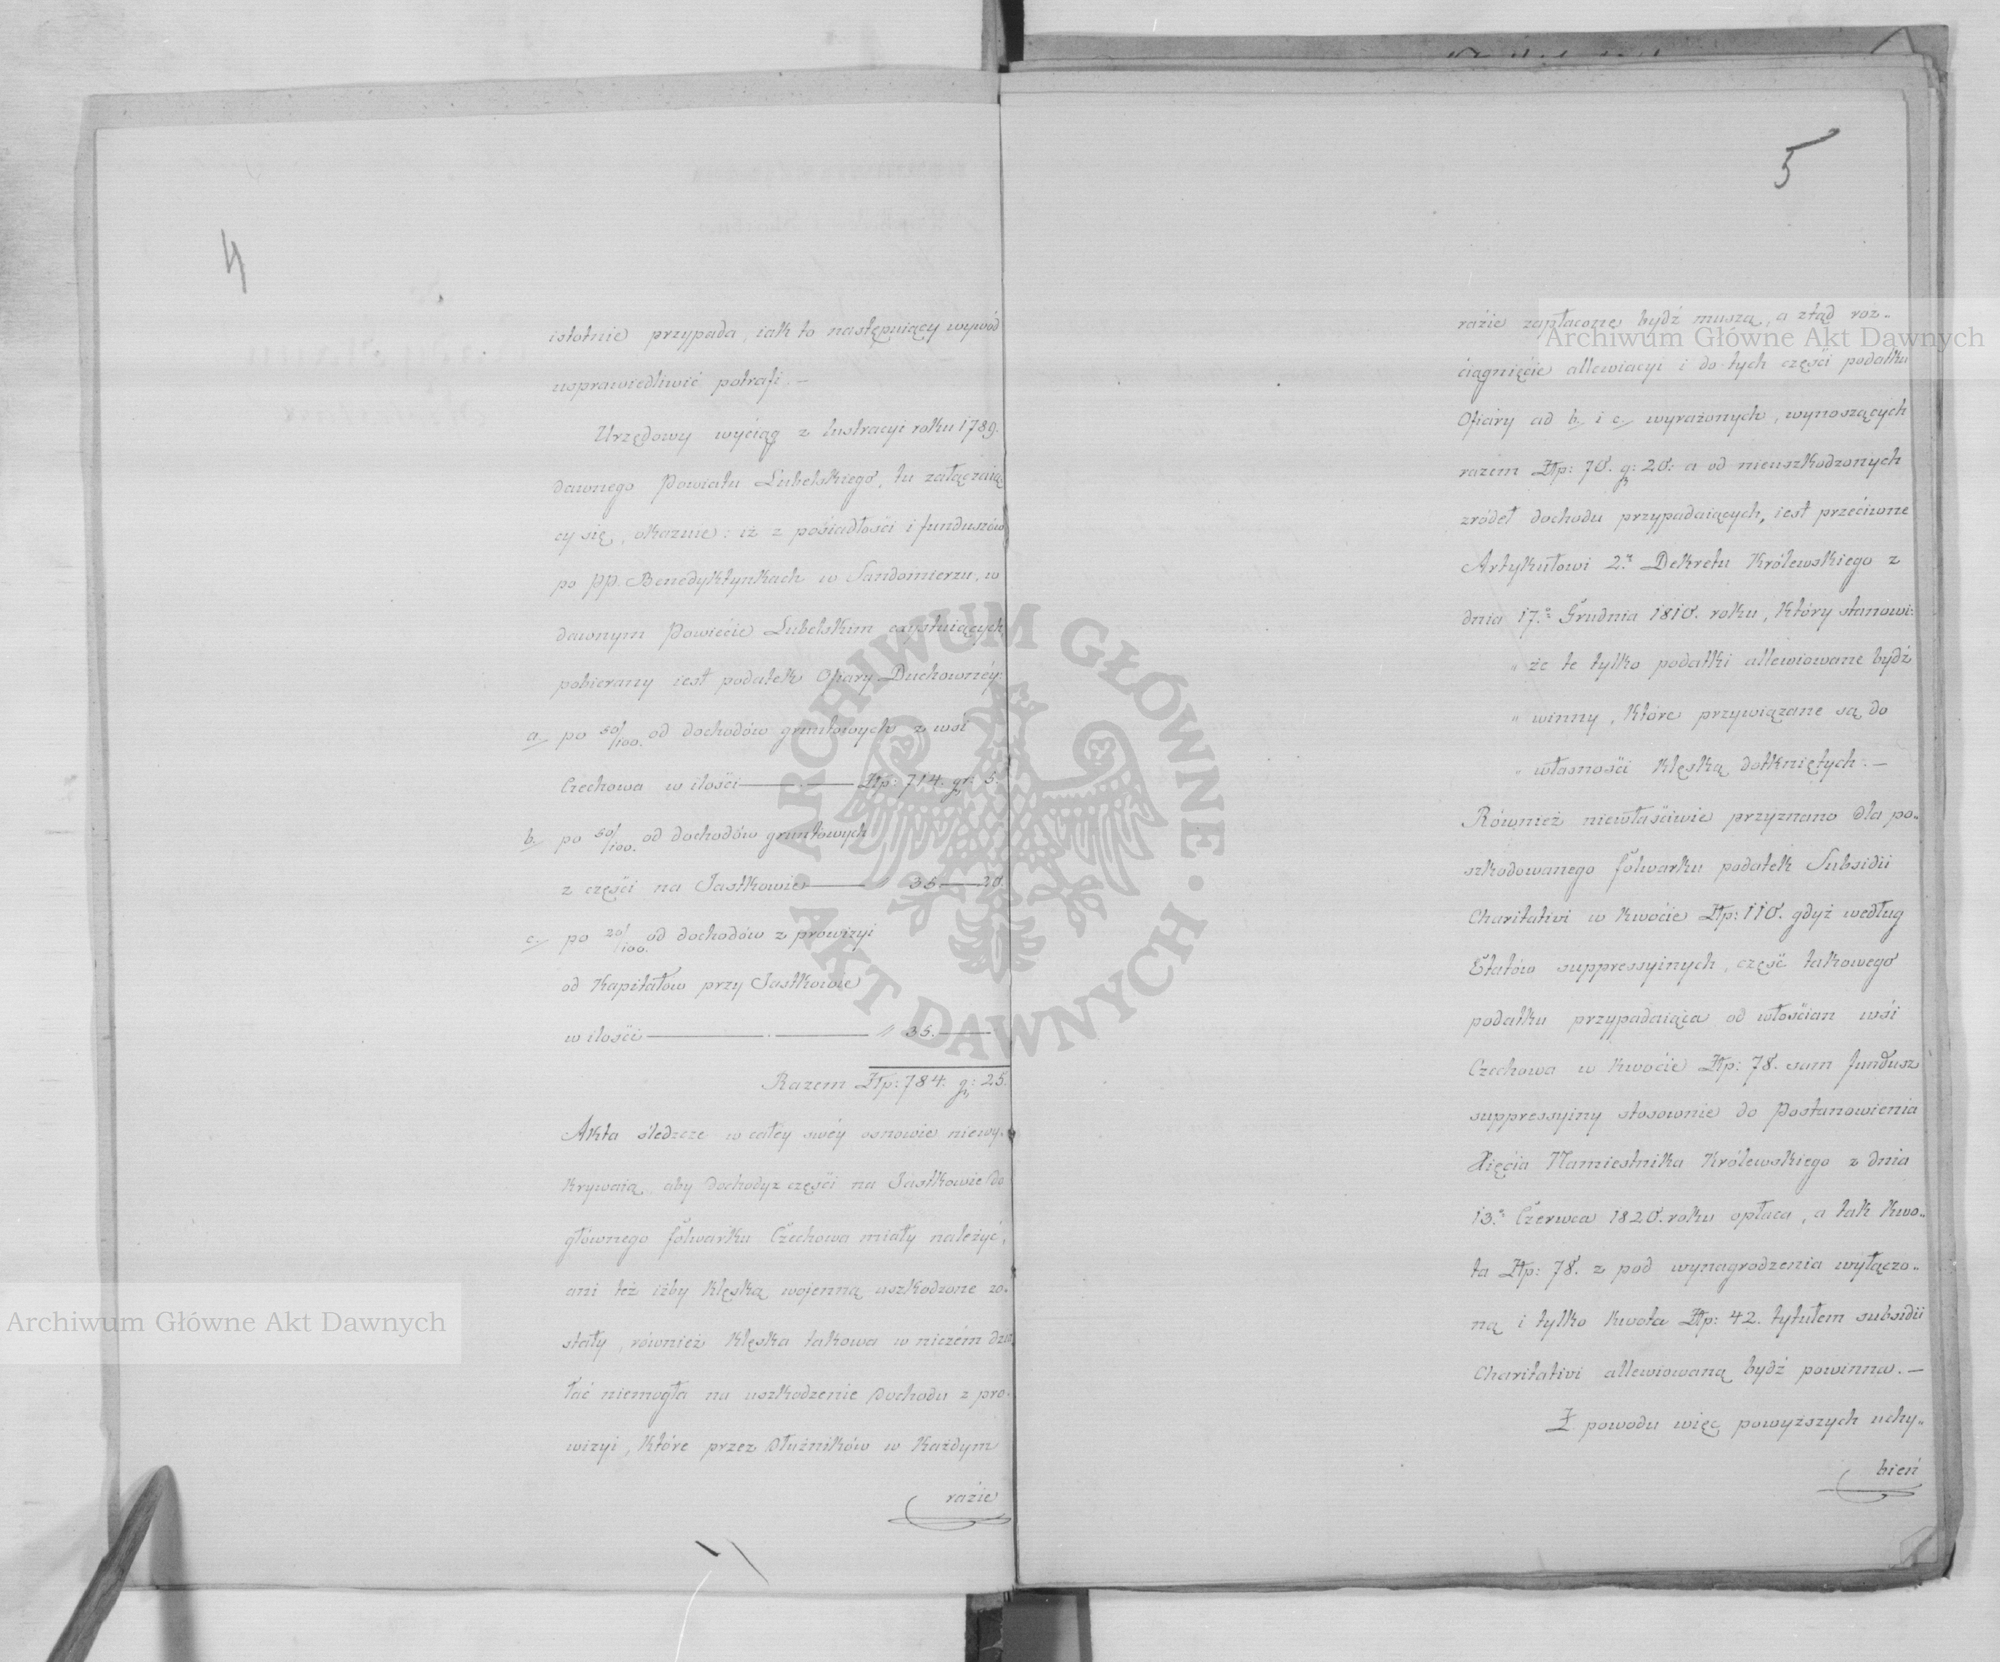 4
istotnie przypada, iak to następuiący wywód
usprawiedliwić potrafi. —
Urzędowy wyciąg z lustracyi roku 1789.
dawnego Powiatu Lubelskiego, tu załączaią
cy się, okazuie: iż z posiadłości i funduszów
po PP. Benedyktynkach w Sandomierzu, w
dawnym Powiecie Lubelskim exystuiących
pobierany iest podatek Ofiary Duchownéy:
a. po 50/100. od dochodów gruntowych z wsi
Czechowa w ilości — Złp: 714. gr: 5.
b. po 50/100. od dochodów gruntowych
z części na Jastkowie — " 35 — 20.
c. po 20/100. od dochodów z prowizyi
od Kapitałów przy Jastkowie
w ilości — " 35. —
Razem Złp: 784. gr: 25.
Akta śledcze w całéy swéy osnowie niewy-
krywaią, aby dochody z części na Jastkowie do
głównego folwarku Czechowa miały należyć,
ani też iżby klęską woienną uszkodzone zo-
stały, również klęska takowa w niczém dzia
łać niemogła na uszkodzenie dochodu z pro-
wizyi, które przez dłużników w każdym
razie
5
razie zapłacone bydź muszą, a ztąd roz-
ciągnięcie allewiacyi i do tych części podatku
Ofiary ad b. i c. wyrażonych, wynoszących
razem Złp: 70. gr: 20: a od nieuszkodzonych
źródeł dochodu przypadaiących, iest przeciwne
Artykułowi 2.° Dekretu Królewskiego z
dnia 17.° Grudnia 1810. roku, który stanowi:
" że te tylko podatki allewiowane bydź
" winny, które przywiązane są do
" własności klęską dotkniętych. —
Również niewłaściwie przyznano dla po-
szkodowanego folwarku podatek Subsidii
Charitativi w kwocie Złp: 110. gdyż według
Etatów suppressyinych, część takowego
podatku przypadaiąca od włościan wsi
Czechowa w kwocie Złp: 78. sam fundusz
suppressyiny stosownie do Postanowienia
Xięcia Namiestnika Królewskiego z dnia
13.° Czerwca 1820. roku opłaca, a tak kwo-
ta Złp: 78. z pod wynagrodzenia wyłączo-
ną i tylko kwota Złp: 42. tytułem subsidii
Charitativi allewiowaną bydź powinna. —
Z powodu więc powyższych uchy-
bień
Archiwum Główne Akt Dawnych
Archiwum Główne Akt Dawnych
ARCHIWUM GŁÓWNE · AKT DAWNYCH ·